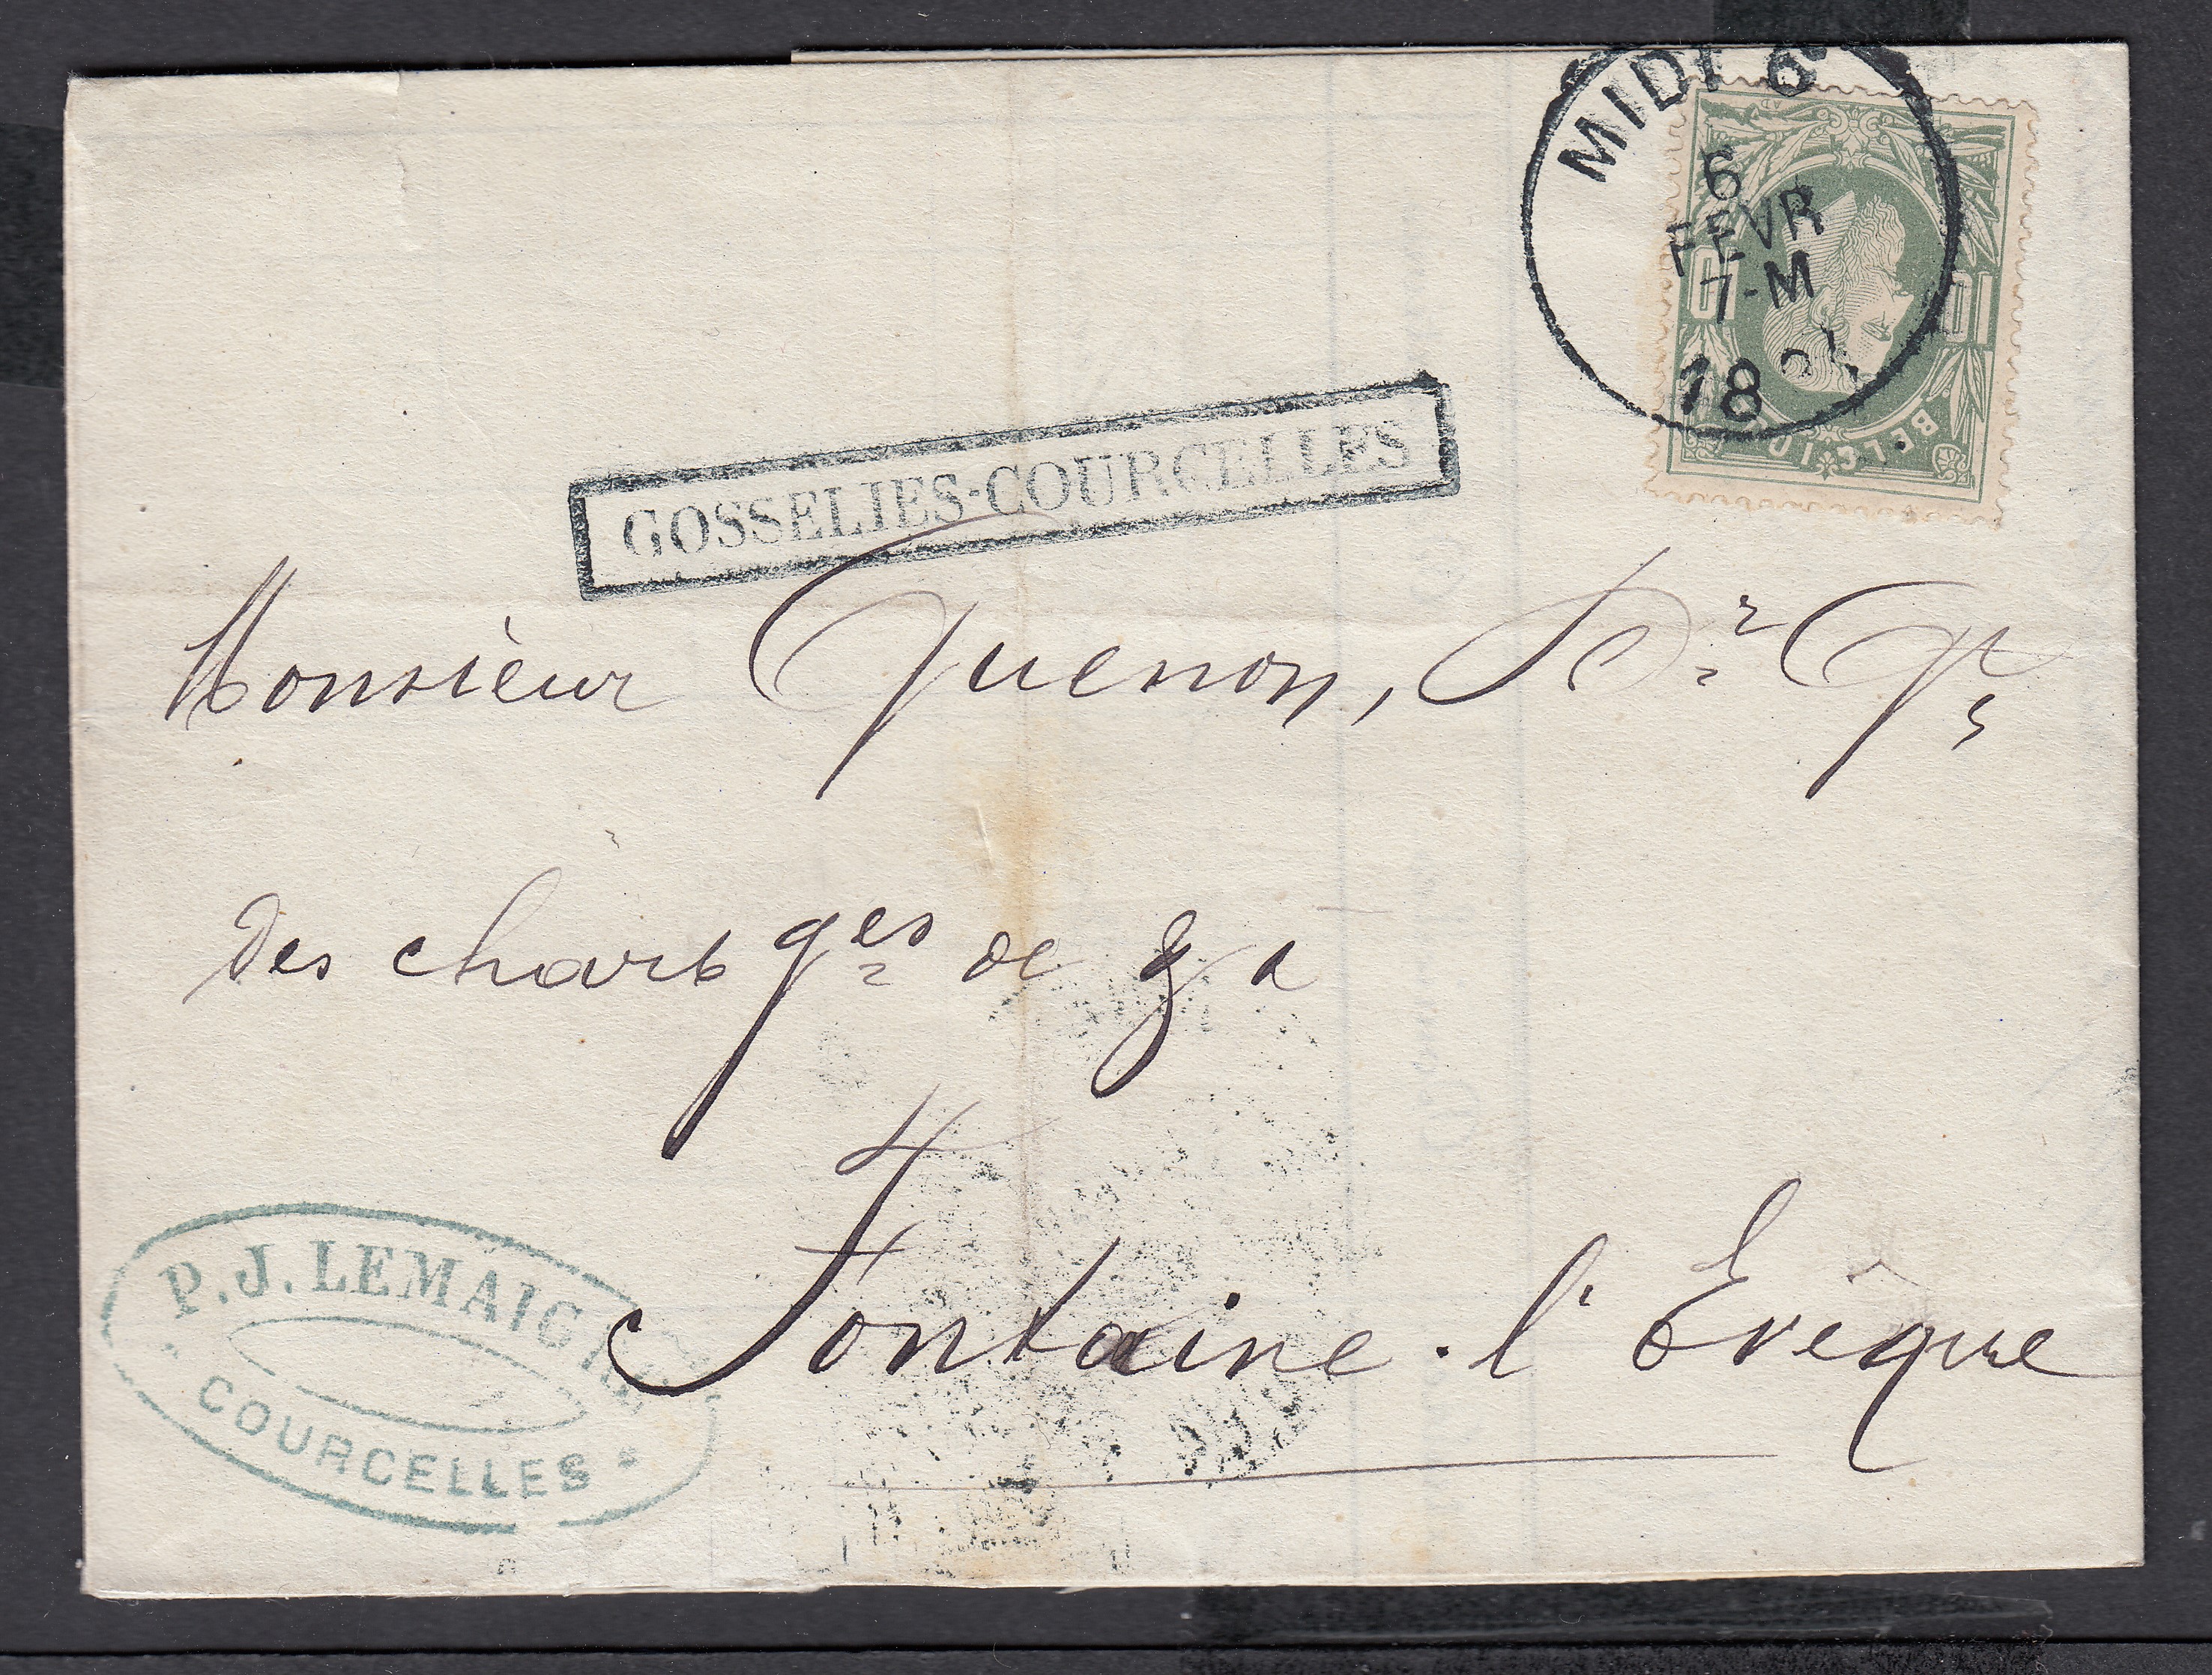 MIDI 6
6
FEVR
7-M
18
10 10
BELGIQUE
GOSSELIES-COURCELLES
Monsieur Quenon, Dr Gt
des charb ges de & à
Fontaine-l'Evêque
P.J. LEMAIG
COURCELLES